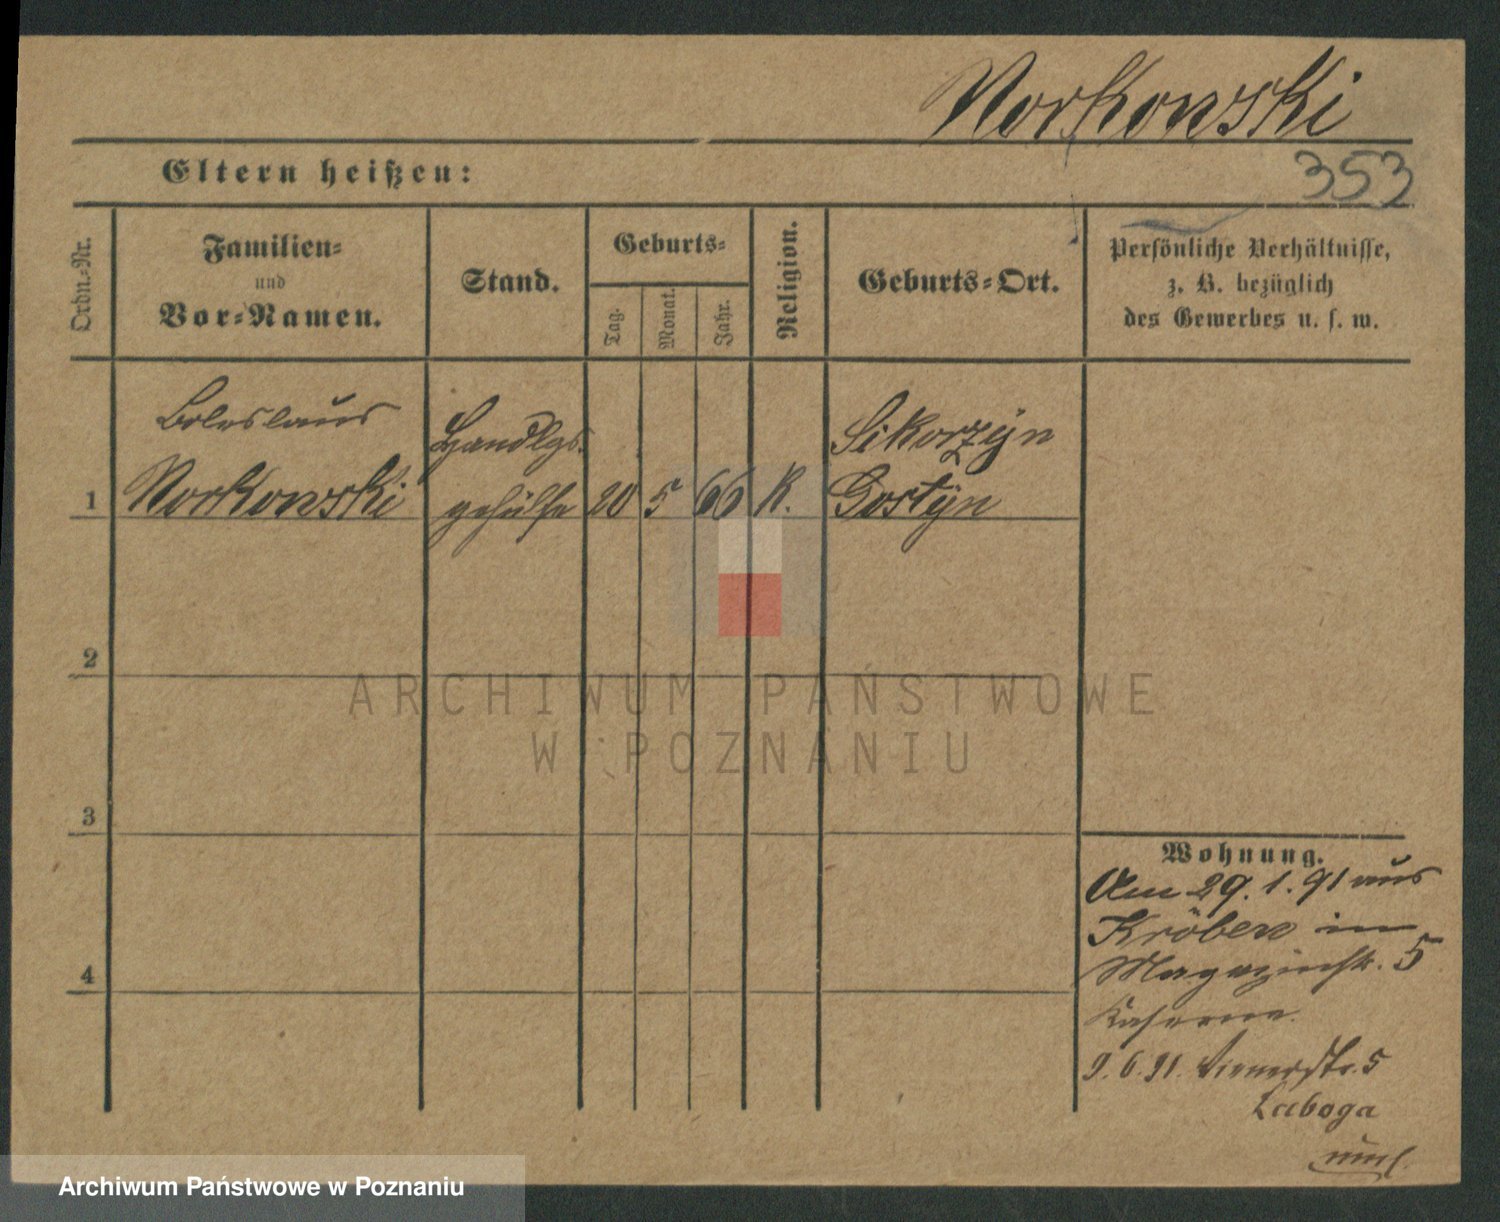 Norkowski
353
Eltern heißen:
Ordn.-Nr.
Familien-
und
Vor-Namen.
Stand.
Geburts-
Tag.
Monat.
Jahr.
Religion.
Geburts-Ort.
Persönliche Verhältnisse,
z. B. bezüglich
des Gewerbes u. s. w.
Boleslaus
Handlgs.
Sikorzyn
1 Norkowski gehülfe 20 5 66 K. Gostyn
2
3
4
Wohnung.
Am 29.1.91 aus
Kröben in
Magazinstr. 5
Kaserne.
9.6.91. Wienerstr. 5
Zaboga
ARCHIWUM PAŃSTWOWE
W POZNANIU
Archiwum Państwowe w Poznaniu